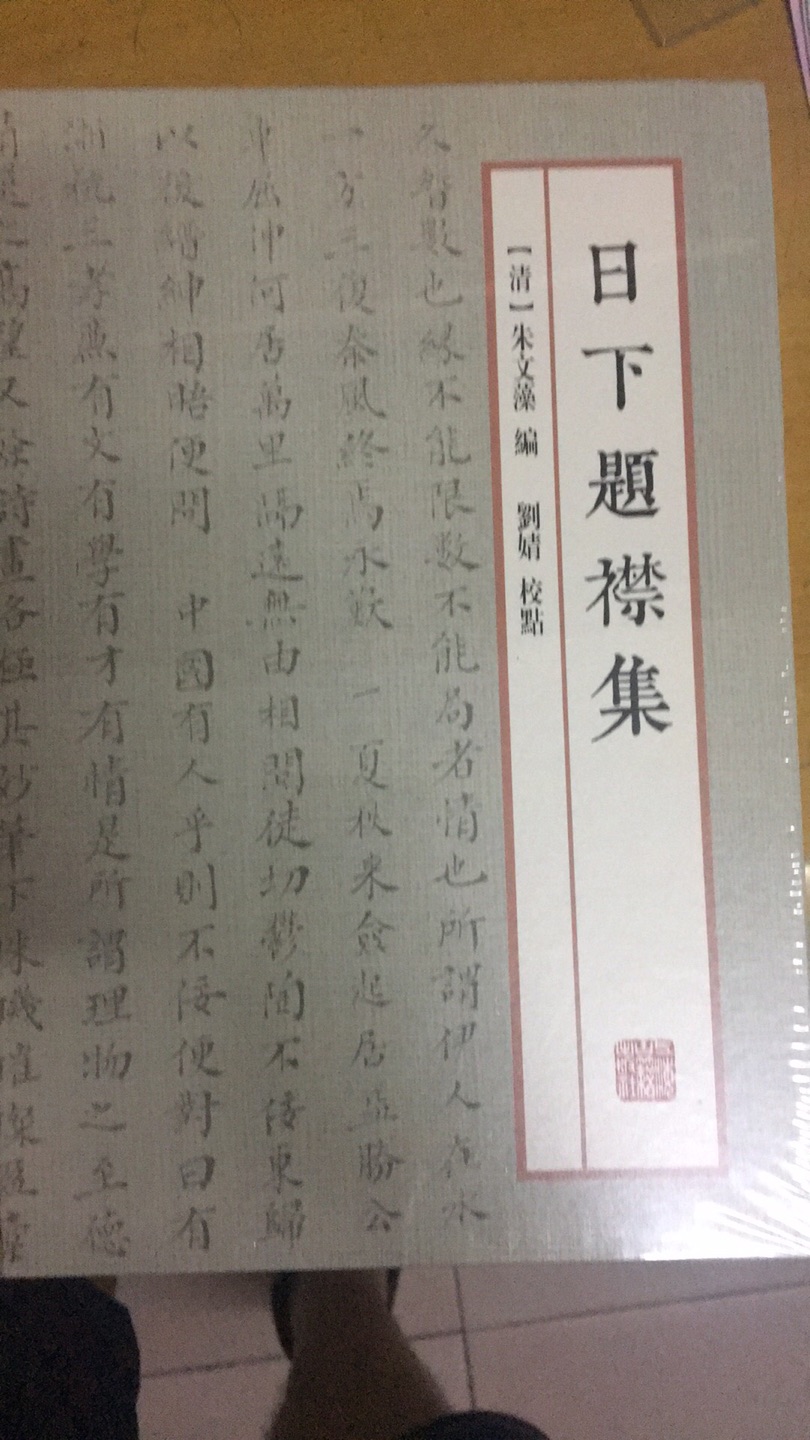 日下題襟集
【清】朱文藻 編 劉婧 校點
久暫數也緣不能限数不能局者情也所謂伊人在水
一方三復秦風終焉永歎 一夏秋来僉起居益勝公
車屈沖何居萬里隔遠無由相聞徒切鬱陶不佞東歸
以後縉紳相晤便問 中國有人乎則不佞便對曰有
浙杭三孝廉有文有學有才有情是所謂理物之至德